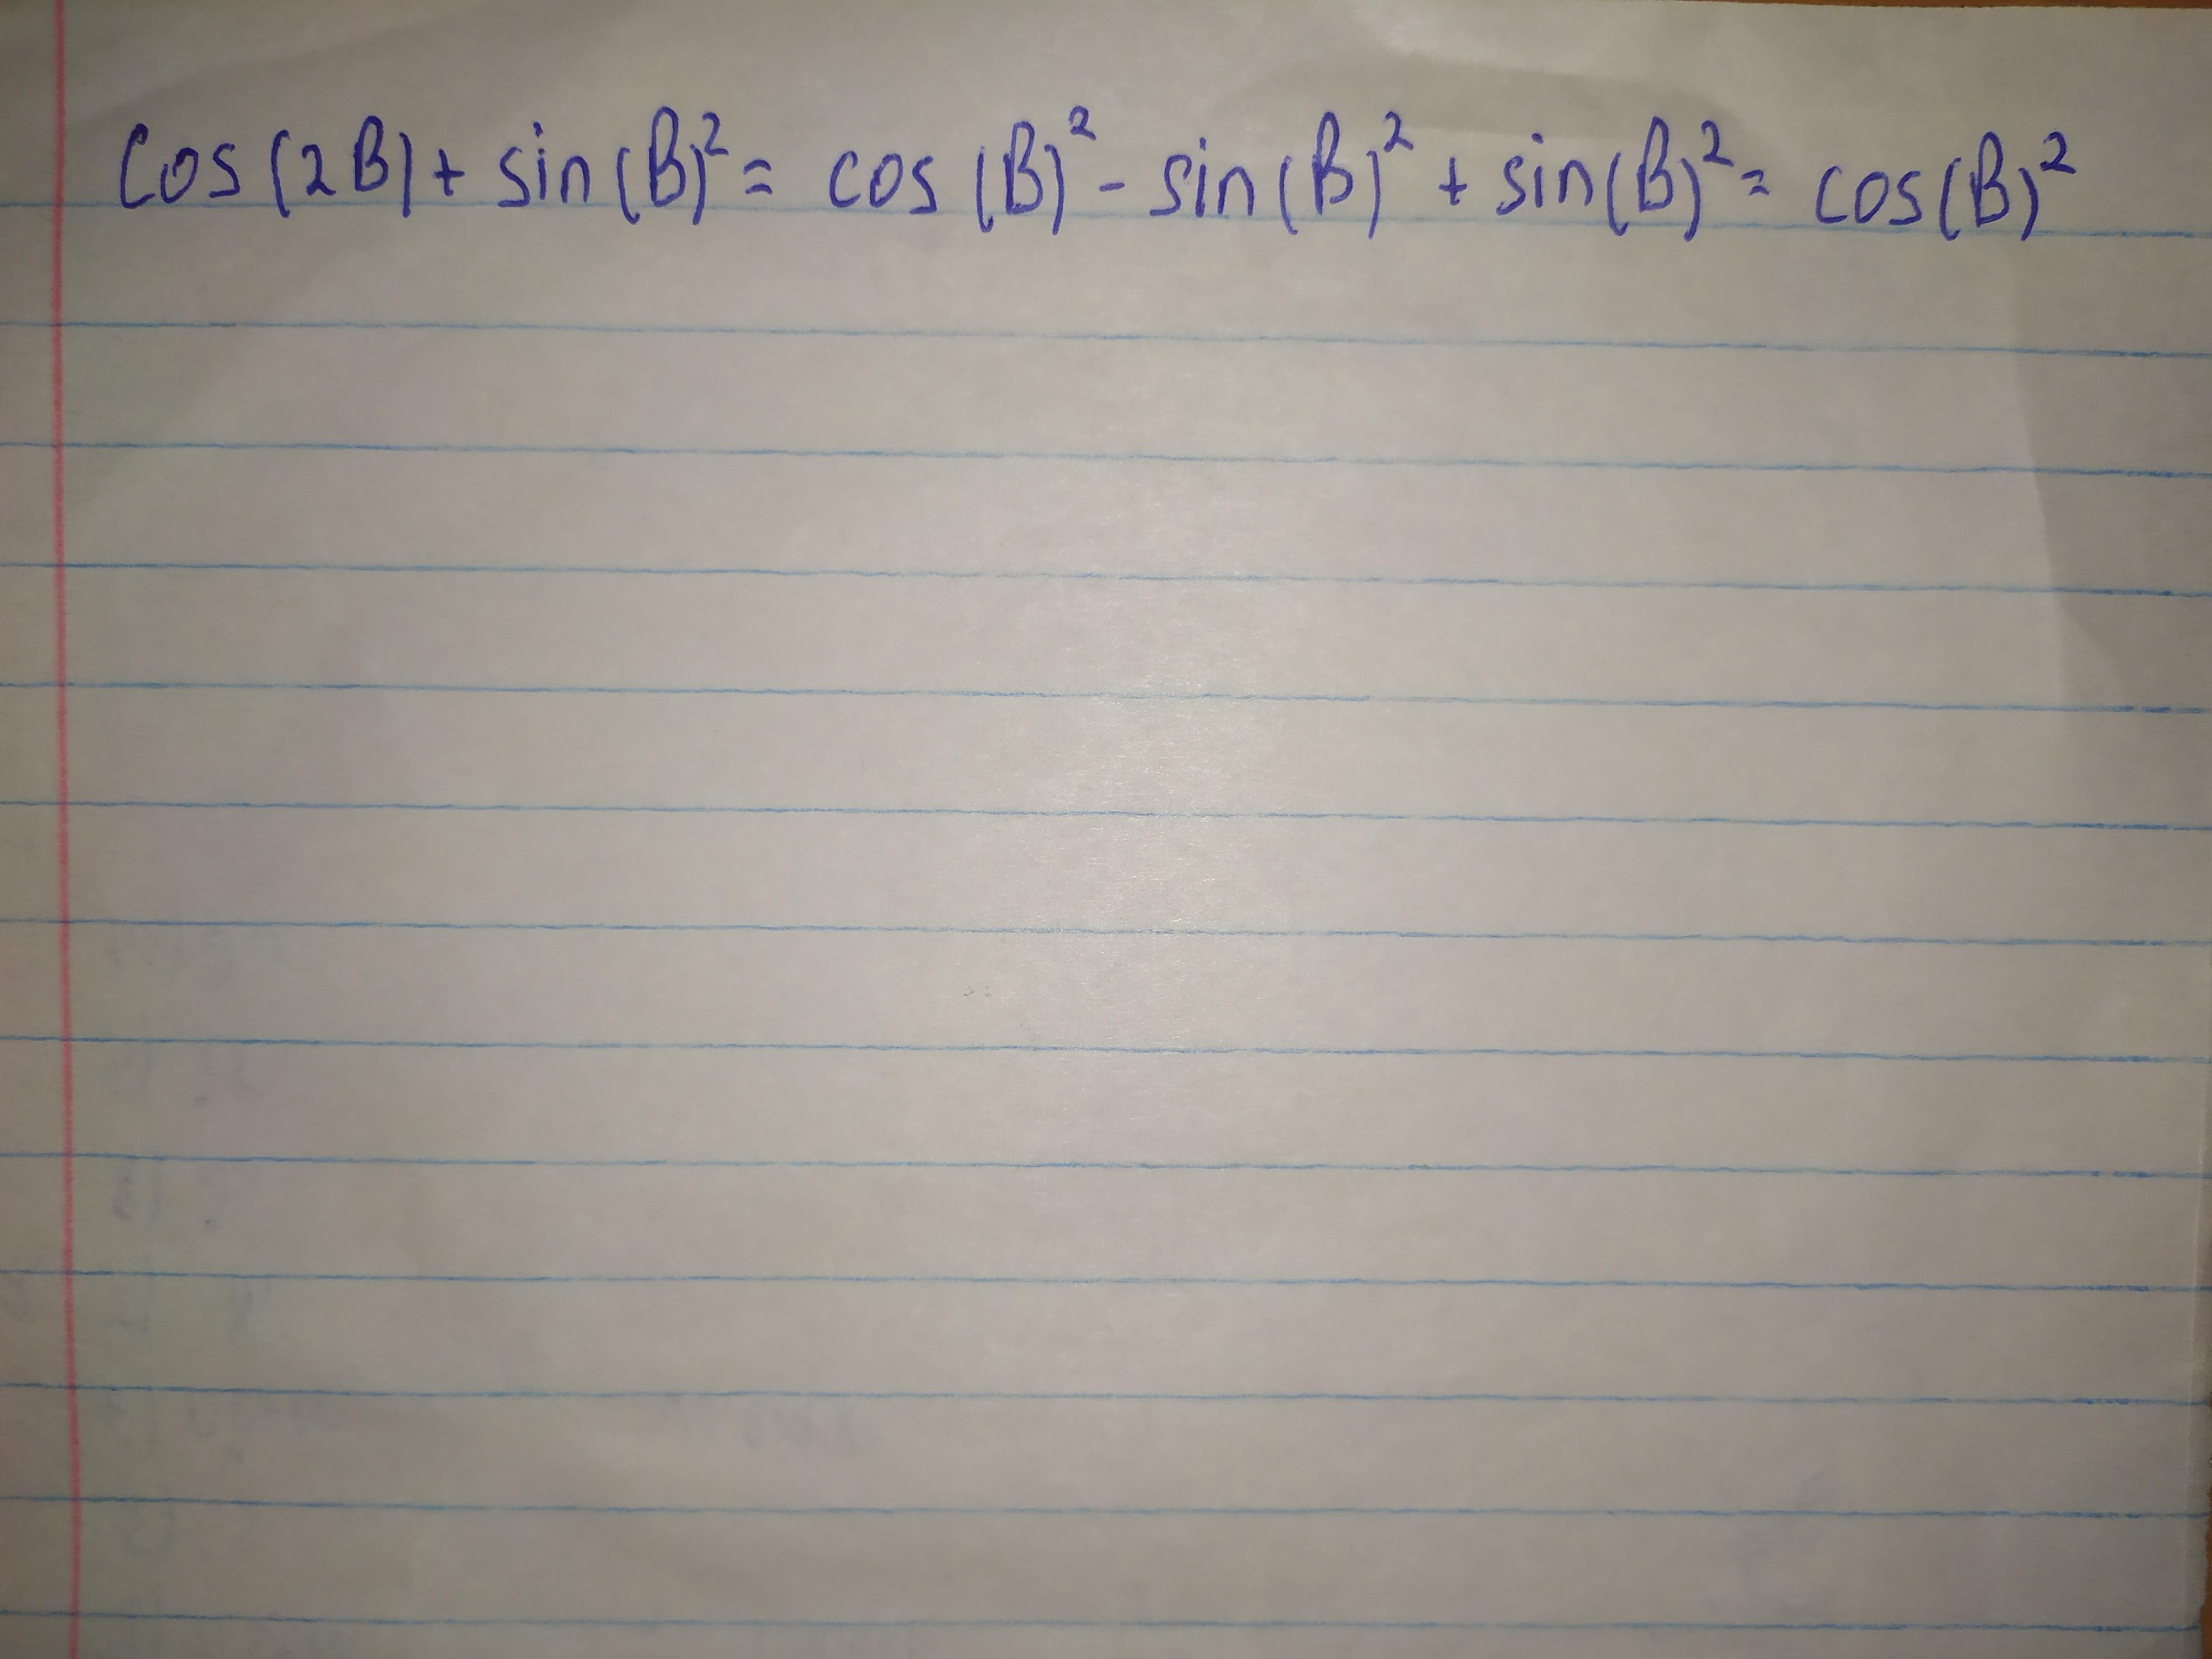 cos(2B)+sin(B)²= cos(B)²-sin(B)²+sin(B)²= cos(B)²